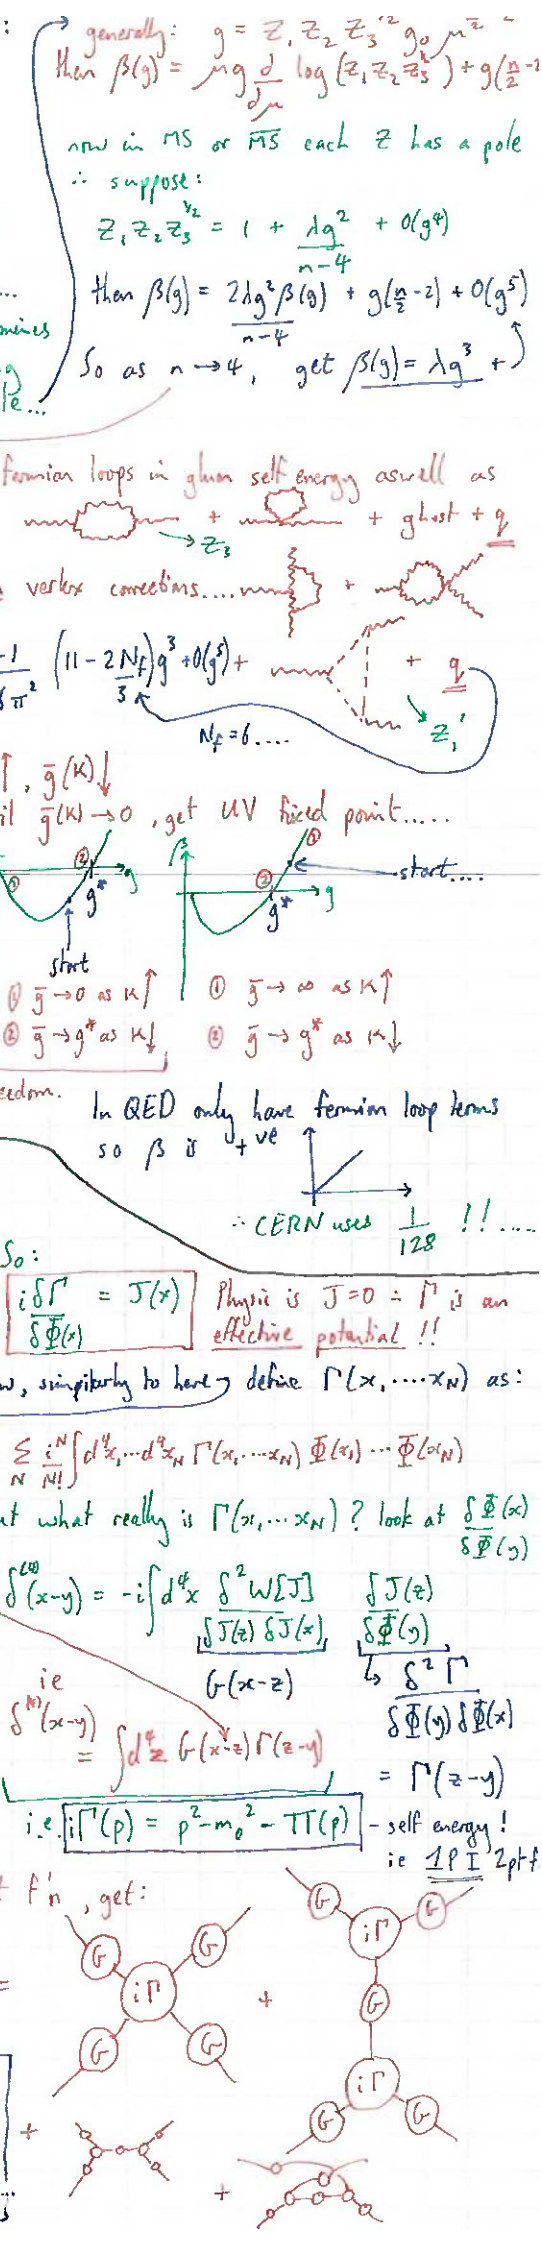 : generally: g = Z₁ Z₂ Z₃^1/2 g₀ μ
then β(g) = μg d/dμ log(Z₁ Z₂ Z₃^½) + g(n/2 -2
now in MS or M̅S̅ each Z has a pole
∴ suppose:
Z₁ Z₂ Z₃^1/2 = 1 + λg²/n-4 + O(g⁴)
...
then β(g) = 2λg²β(g)/n-4 + g(n/2 -2) + O(g⁵)
So as n → 4, get β(g) = λg³ +
fermion loops in gluon self energy aswell as
+ + ghost + q
→ Z₃
vertex corrections.... +
(11 - 2N_f/3) g³ + O(g⁵) + + q
N_f = 6 ....
Z₁
↑, ḡ(K)↓
ḡ(K) → 0, get UV fixed point.....
② g β ①
① g* ② g* g start....
start
① ḡ → 0 as K↑ ① ḡ → ∞ as K↑
② ḡ → g* as K↓ ② ḡ → g* as K↓
eedom. In QED only have fermion loop terms
so β is +ve
∴ CERN uses 1/128 !!....
So:
iδΓ/δΦ(x) = J(x) Physic is J=0 ∴ Γ is an
effective potential !!
w, similarly to here define Γ(x,....x_N) as:
Σ_N i^N/N! ∫d⁴x₁...d⁴x_N Γ(x₁....x_N) Φ(x₁) ... Φ(x_N)
what really is Γ(x₁,...x_N)? look at δΦ(x)/δΦ(y)
δ⁽⁴⁾(x-y) = -i∫d⁴x δ²W[J]/δJ(z) δJ(x) δJ(z)/δΦ(y)
ie G(x-z) ↳ δ²Γ/δΦ(y) δΦ(x)
δ⁽⁴⁾(x-y) = ∫d⁴z G(x-z) Γ(z-y)
= Γ(z-y)
i.e. iΓ(p) = p² - m₀² - Π(p) - self energy!
ie 1PI 2pt f
f'n, get:
G G G G
iΓ iΓ
= + G
G G iΓ
G G
+
+